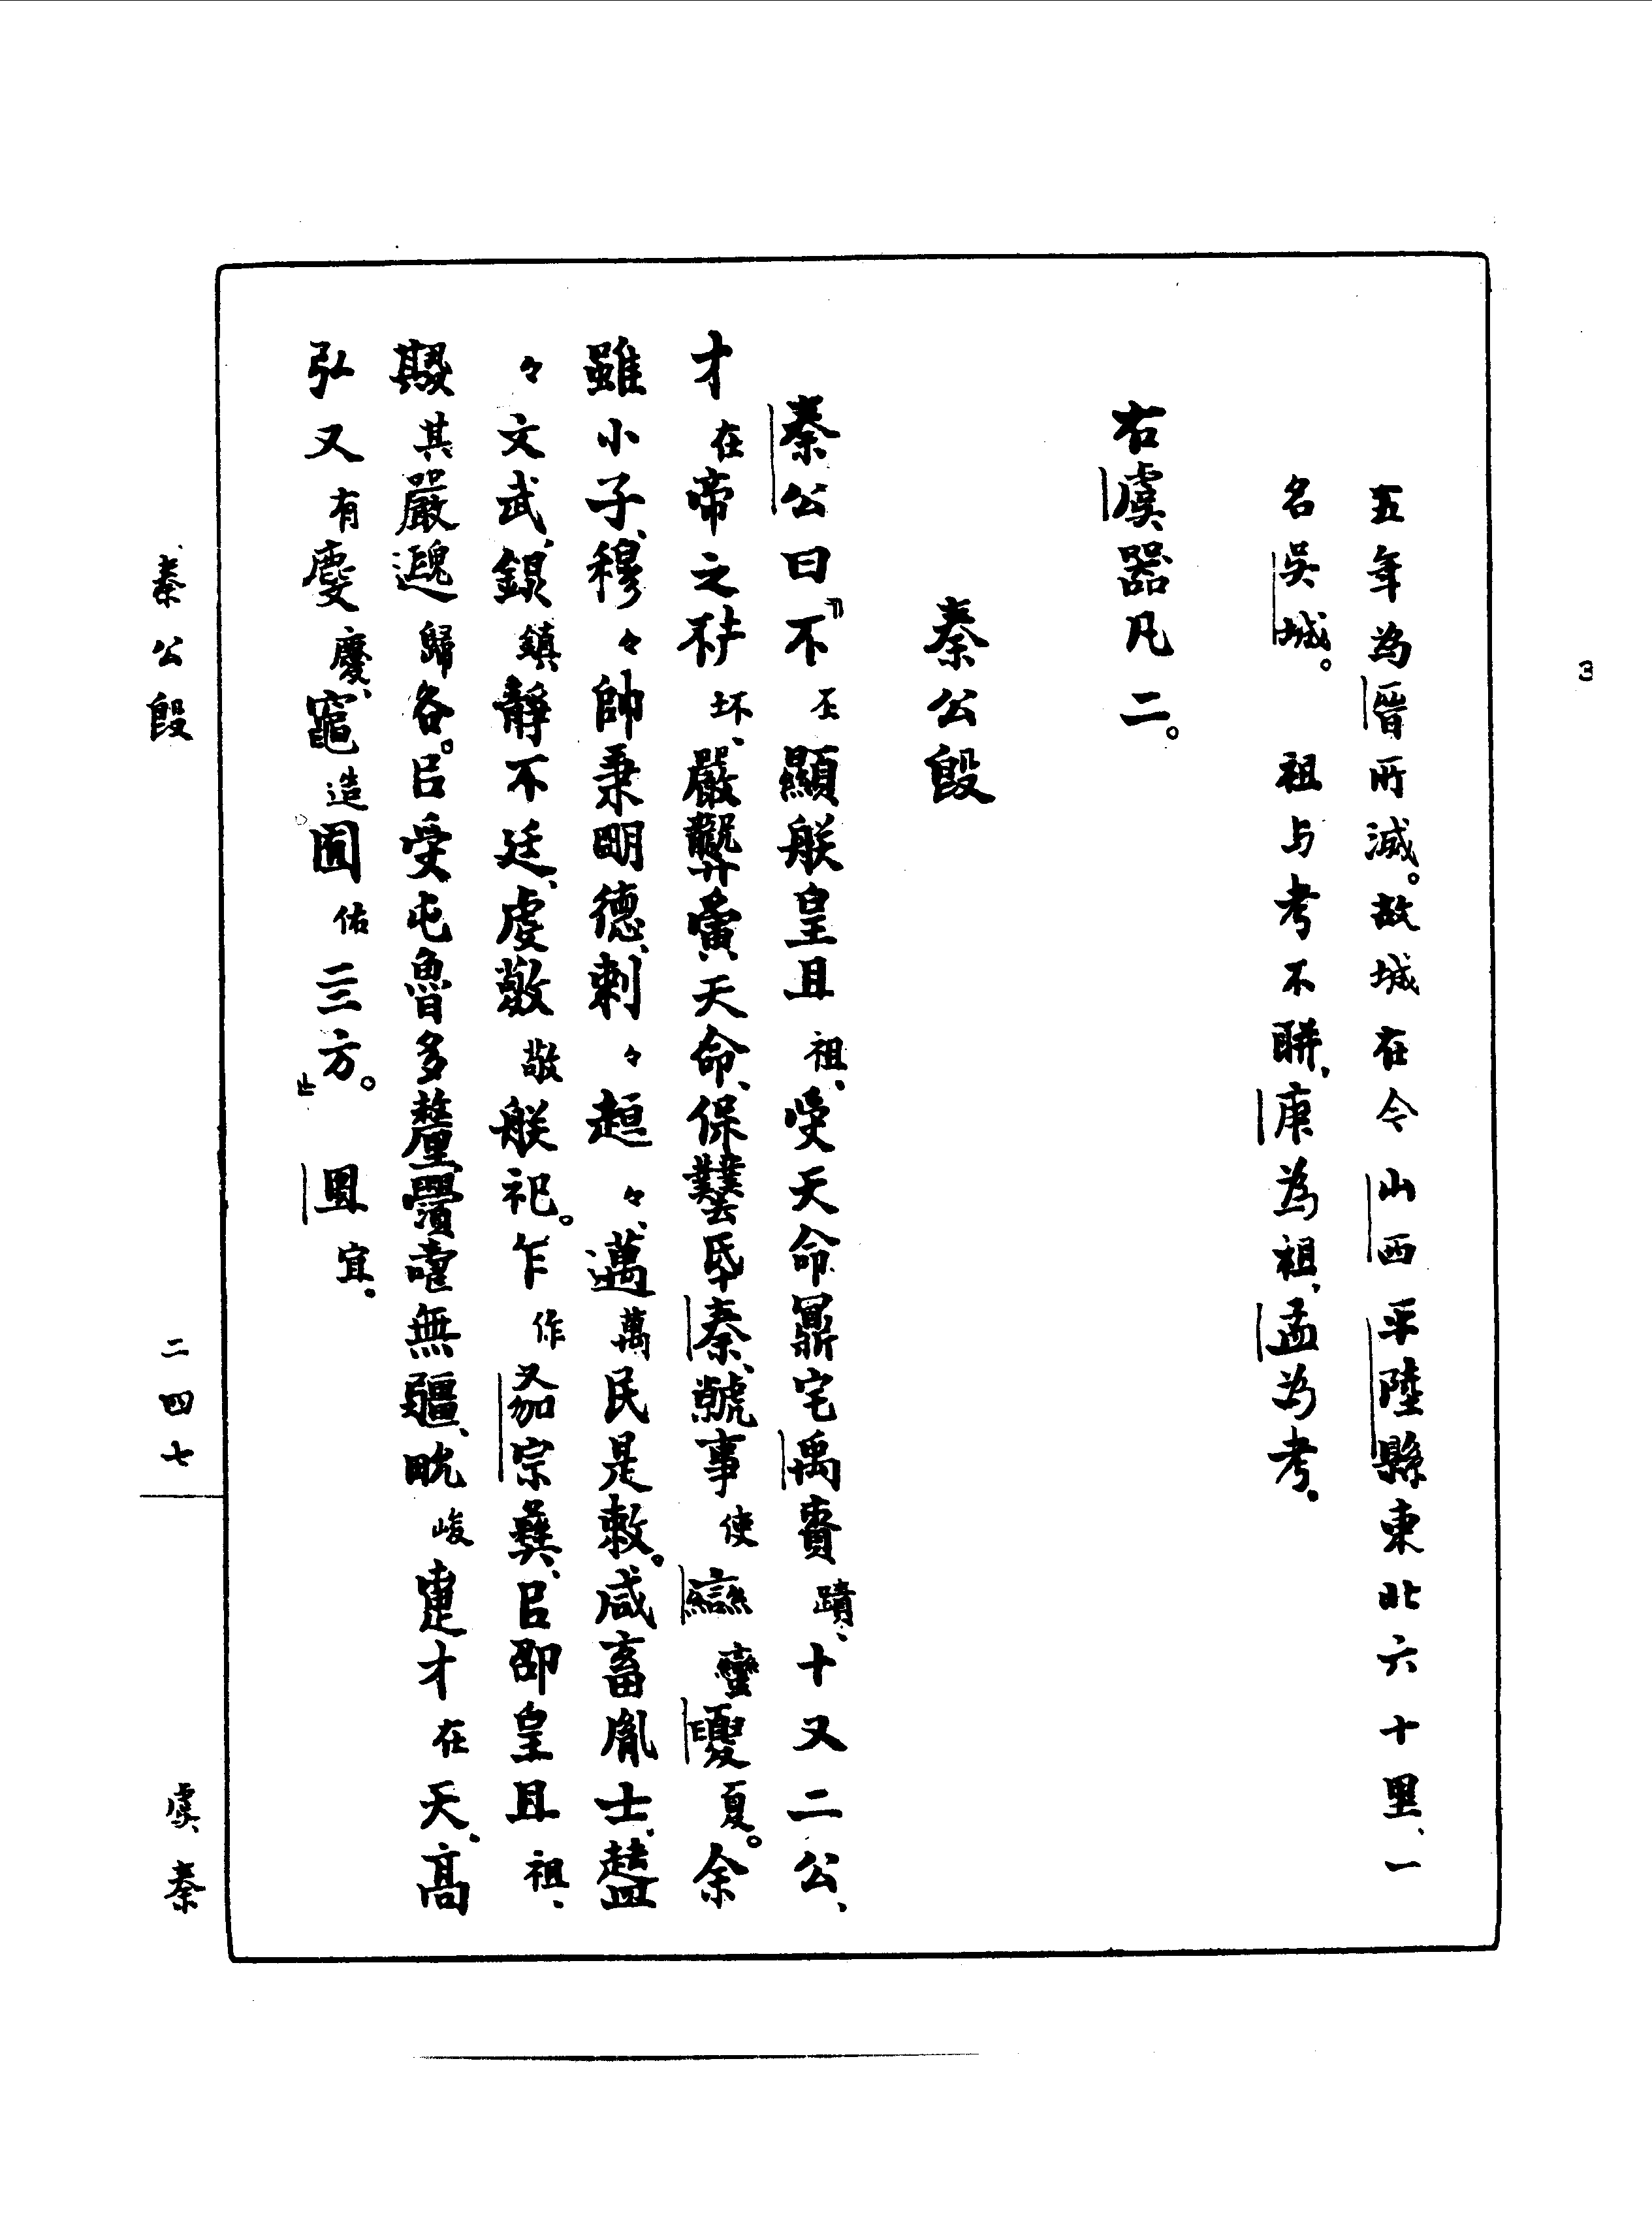 五年為晉所滅。故城在今山西平陸縣東北六十里、一
名吳城。　祖与考不聯、庚為祖、孟為考。
右虞器凡二。
秦公𣪘
秦公曰『不丕顯朕皇且祖、受天命鼏宅禹賚蹟、十又二公、
才在帝之坏、嚴龏夤天命、保業氒秦、虩事使䜌蠻夏。余
雖小子、穆々帥秉明德、剌々趄々、邁萬民是敕。咸畜胤士、𧽙
々文武、鋃鎮靜不廷、虔敬朕祀。乍作宗彝、㠯卲皇且祖、
其嚴歸各。㠯受屯魯多釐眉壽無疆、畯峻疐才在天、高
弘又有慶、竈造囿佑三方。』　宜。
秦公𣪘
二四七
虞、秦
3